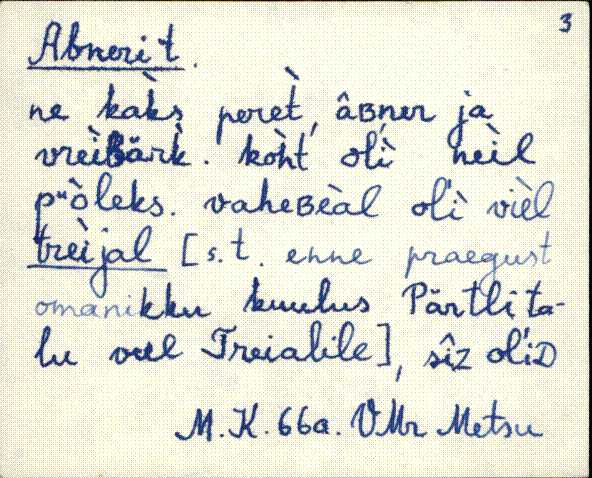 3
Abneri t.
ne kàks perèt, âʙner ja
vrèiʙärk̀. kòht olì nèil
pᵘòleks. vaheʙèal olì vièl
trèijal [s.t. enne praegust
omanikku kuulus Pärtli ta-
lu veel Treialile], sîz olìᴅ
M.K. 66a. VMr Metsu